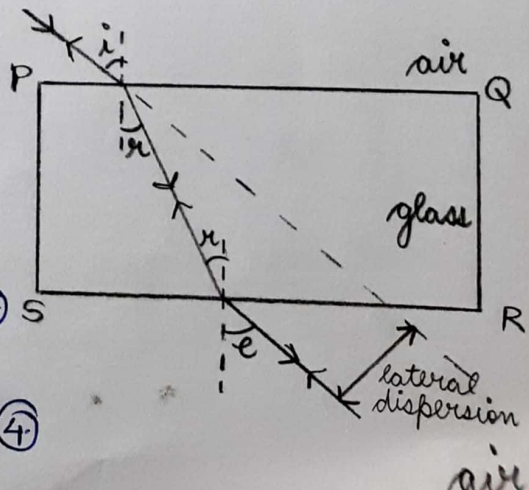 i
air
P
Q
r
glass
r
S
R
e
lateral
dispersion
4.
air